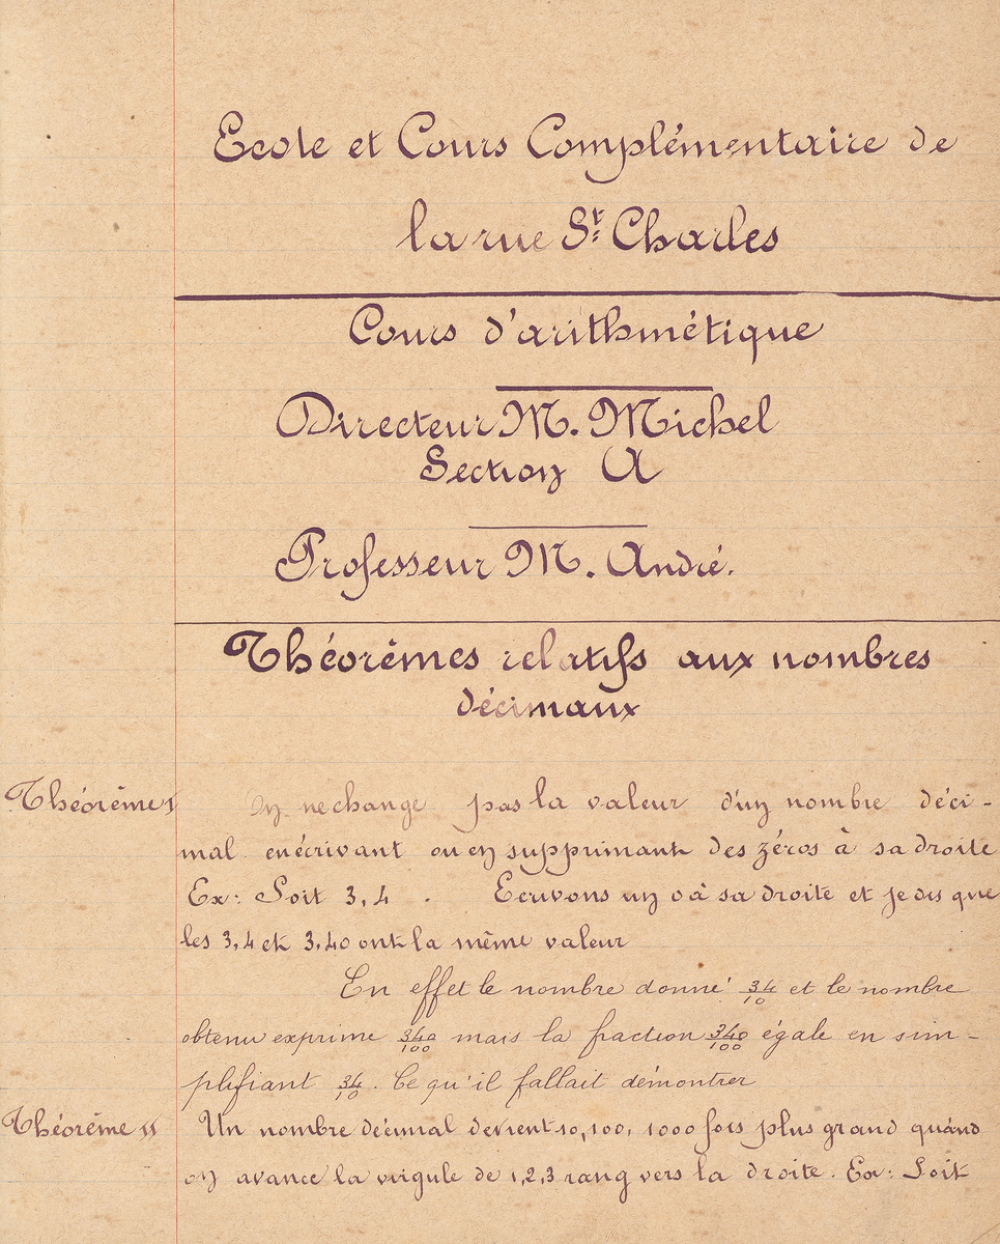 Ecole et Cours Complémentaire de
la rue St. Charles
Cours d'arithmétique
Directeur M. Michel
Section A
Professeur M. André.
Théorèmes relatifs aux nombres
décimaux
Théorème I On ne change pas la valeur d'un nombre déci-
mal en écrivant ou en supprimant des zéros à sa droite
Ex: Soit 3,4 . Ecrivons un 0 à sa droite et je dis que
les 3,4 et 3,40 ont la même valeur
En effet le nombre donné 34/10 et le nombre
obtenu exprime 340/100 mais la fraction 340/100 égale en sim-
plifiant 34/10. Ce qu'il fallait démontrer
Théorème II Un nombre décimal devient 10, 100, 1000 fois plus grand quand
on avance la virgule de 1,2,3 rang vers la droite. Ex: Soit